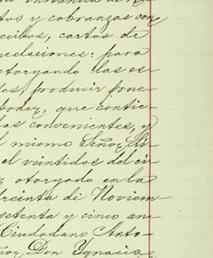 tos y cobranzas con
cibos, cartas de
nelaciones: para
otorgando las es
des, producir fone
boder, que contie
las convenientes, y
l mismo Señor,
el veintidos del ci
otorgado en la
treinta de Noviem
setenta y cinco an
Ciudadano Anto-
nor, Don Ygnacio